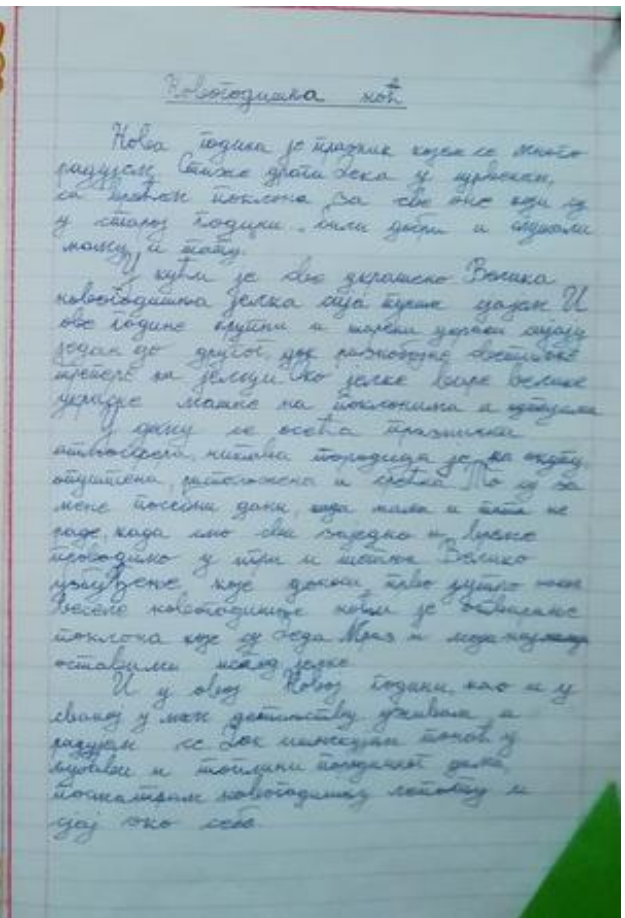 Новогодишна ноћ
Нова година је празник којем се много
радујем. Стиже драги Дека у црвеном,
са врећом поклона за све оне који су
у старој години били добри и слушали
маму и тату.
У кући је све украшено. Велика
новогодишња јелка сија пуним сјајем. И
ове године крупни и шарени украси сијају
један до другог, док разнобојне светиљке
трепере на јелци. Око јелке вире велике
машне на поклонима и
У дану се осећа празнична
атмосфера, читава породица је на окупу,
опуштена, расположена и срећна. То су за
мене посебни дани, када мама и тата не
раде, када смо сви заједно и време
проводимо у игри и шетњи. Велико
узбуђење које доноси прво јутро након
веселе новогодишње ноћи је отварање
поклона које су Деда Мраз и моја
оставили испод јелке.
И у овој Новој години, као и у
свакој у мом детињству уживам и
радујем се. Док ишчекујем поноћ у
љубави и топлини породичног дома,
посматрам новогодишњу лепоту и
сјај око себе.